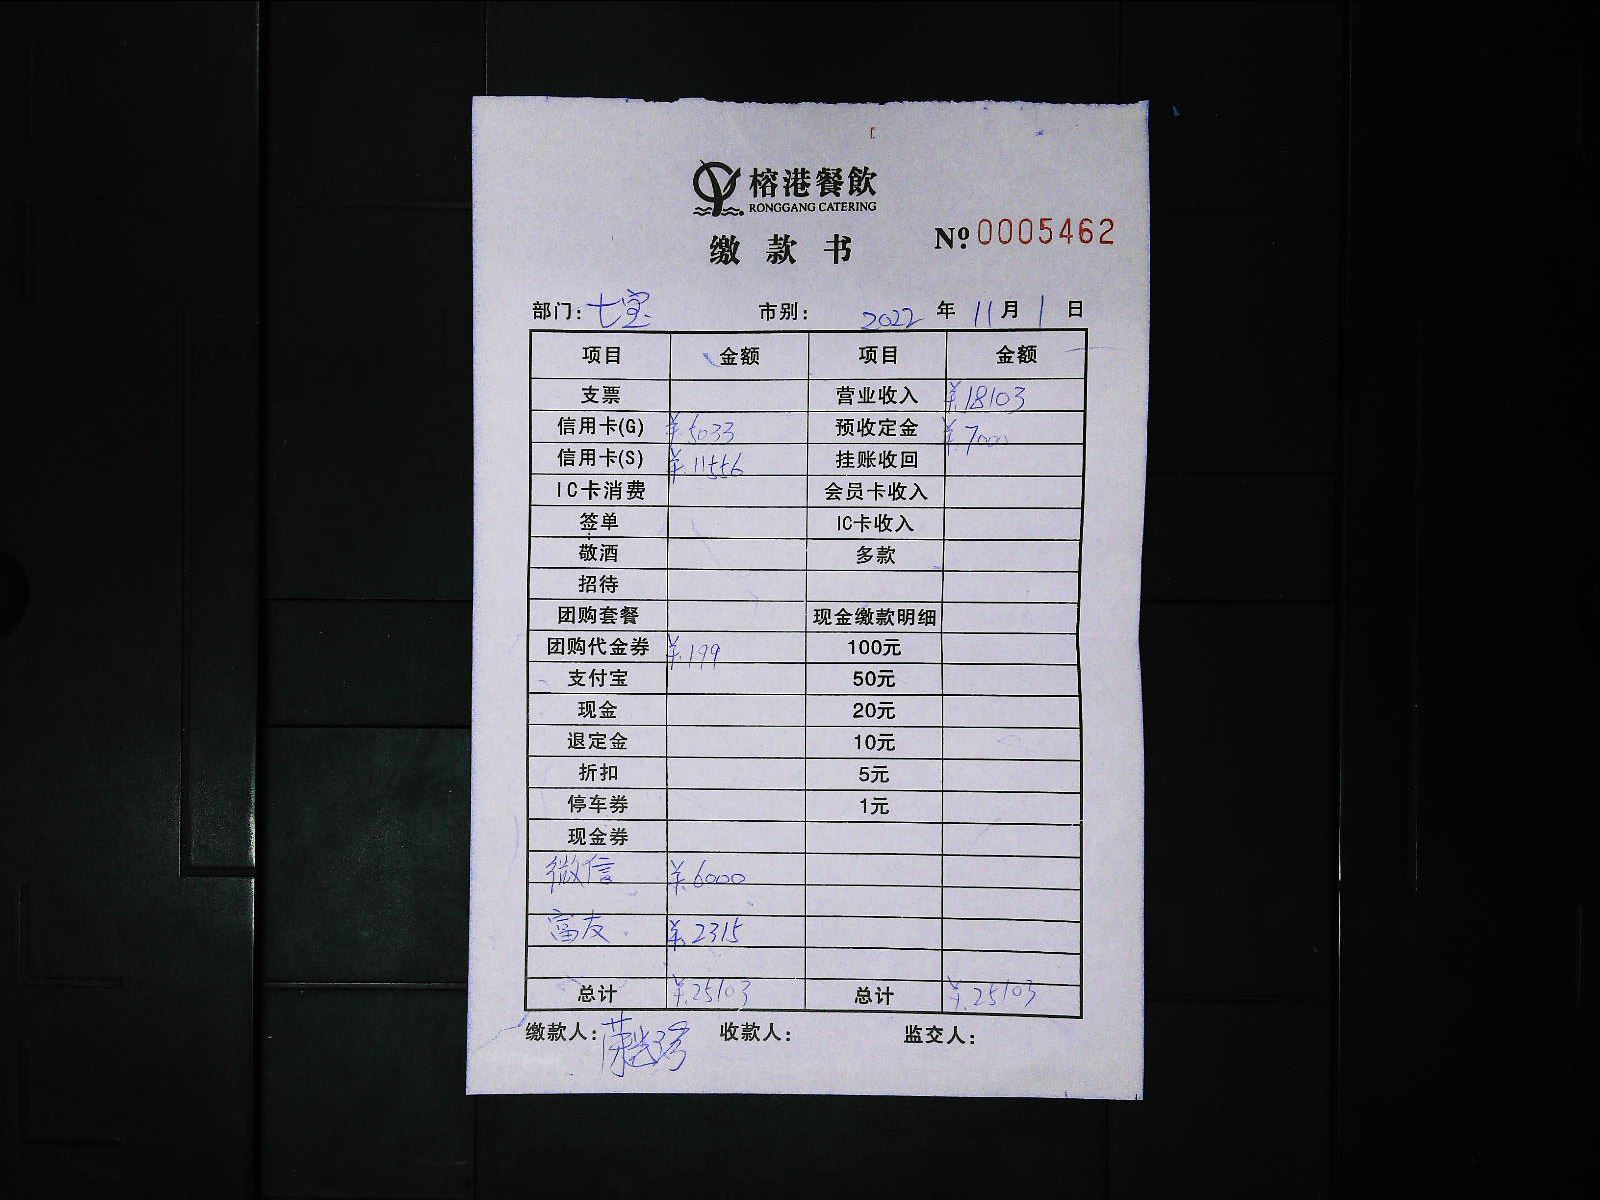 榕港餐飲
RONGGANG CATERING
缴款书
Nº:0005462
部门:七宝 市别: 2022年11月1日
项目 金额 项目 金额
支票 营业收入 ¥18103
信用卡(G) ¥5033 预收定金 ¥7000
信用卡(S) ¥11556 挂账收回
IC卡消费 会员卡收入
签单 IC卡收入
敬酒 多款
招待
团购套餐 现金缴款明细
团购代金券 ¥199 100元
支付宝 50元
现金 20元
退定金 10元
折扣 5元
停车券 1元
现金券
微信 ¥6000
富友 ¥2315
总计 ¥25103 总计 ¥25103
缴款人: 收款人: 监交人: